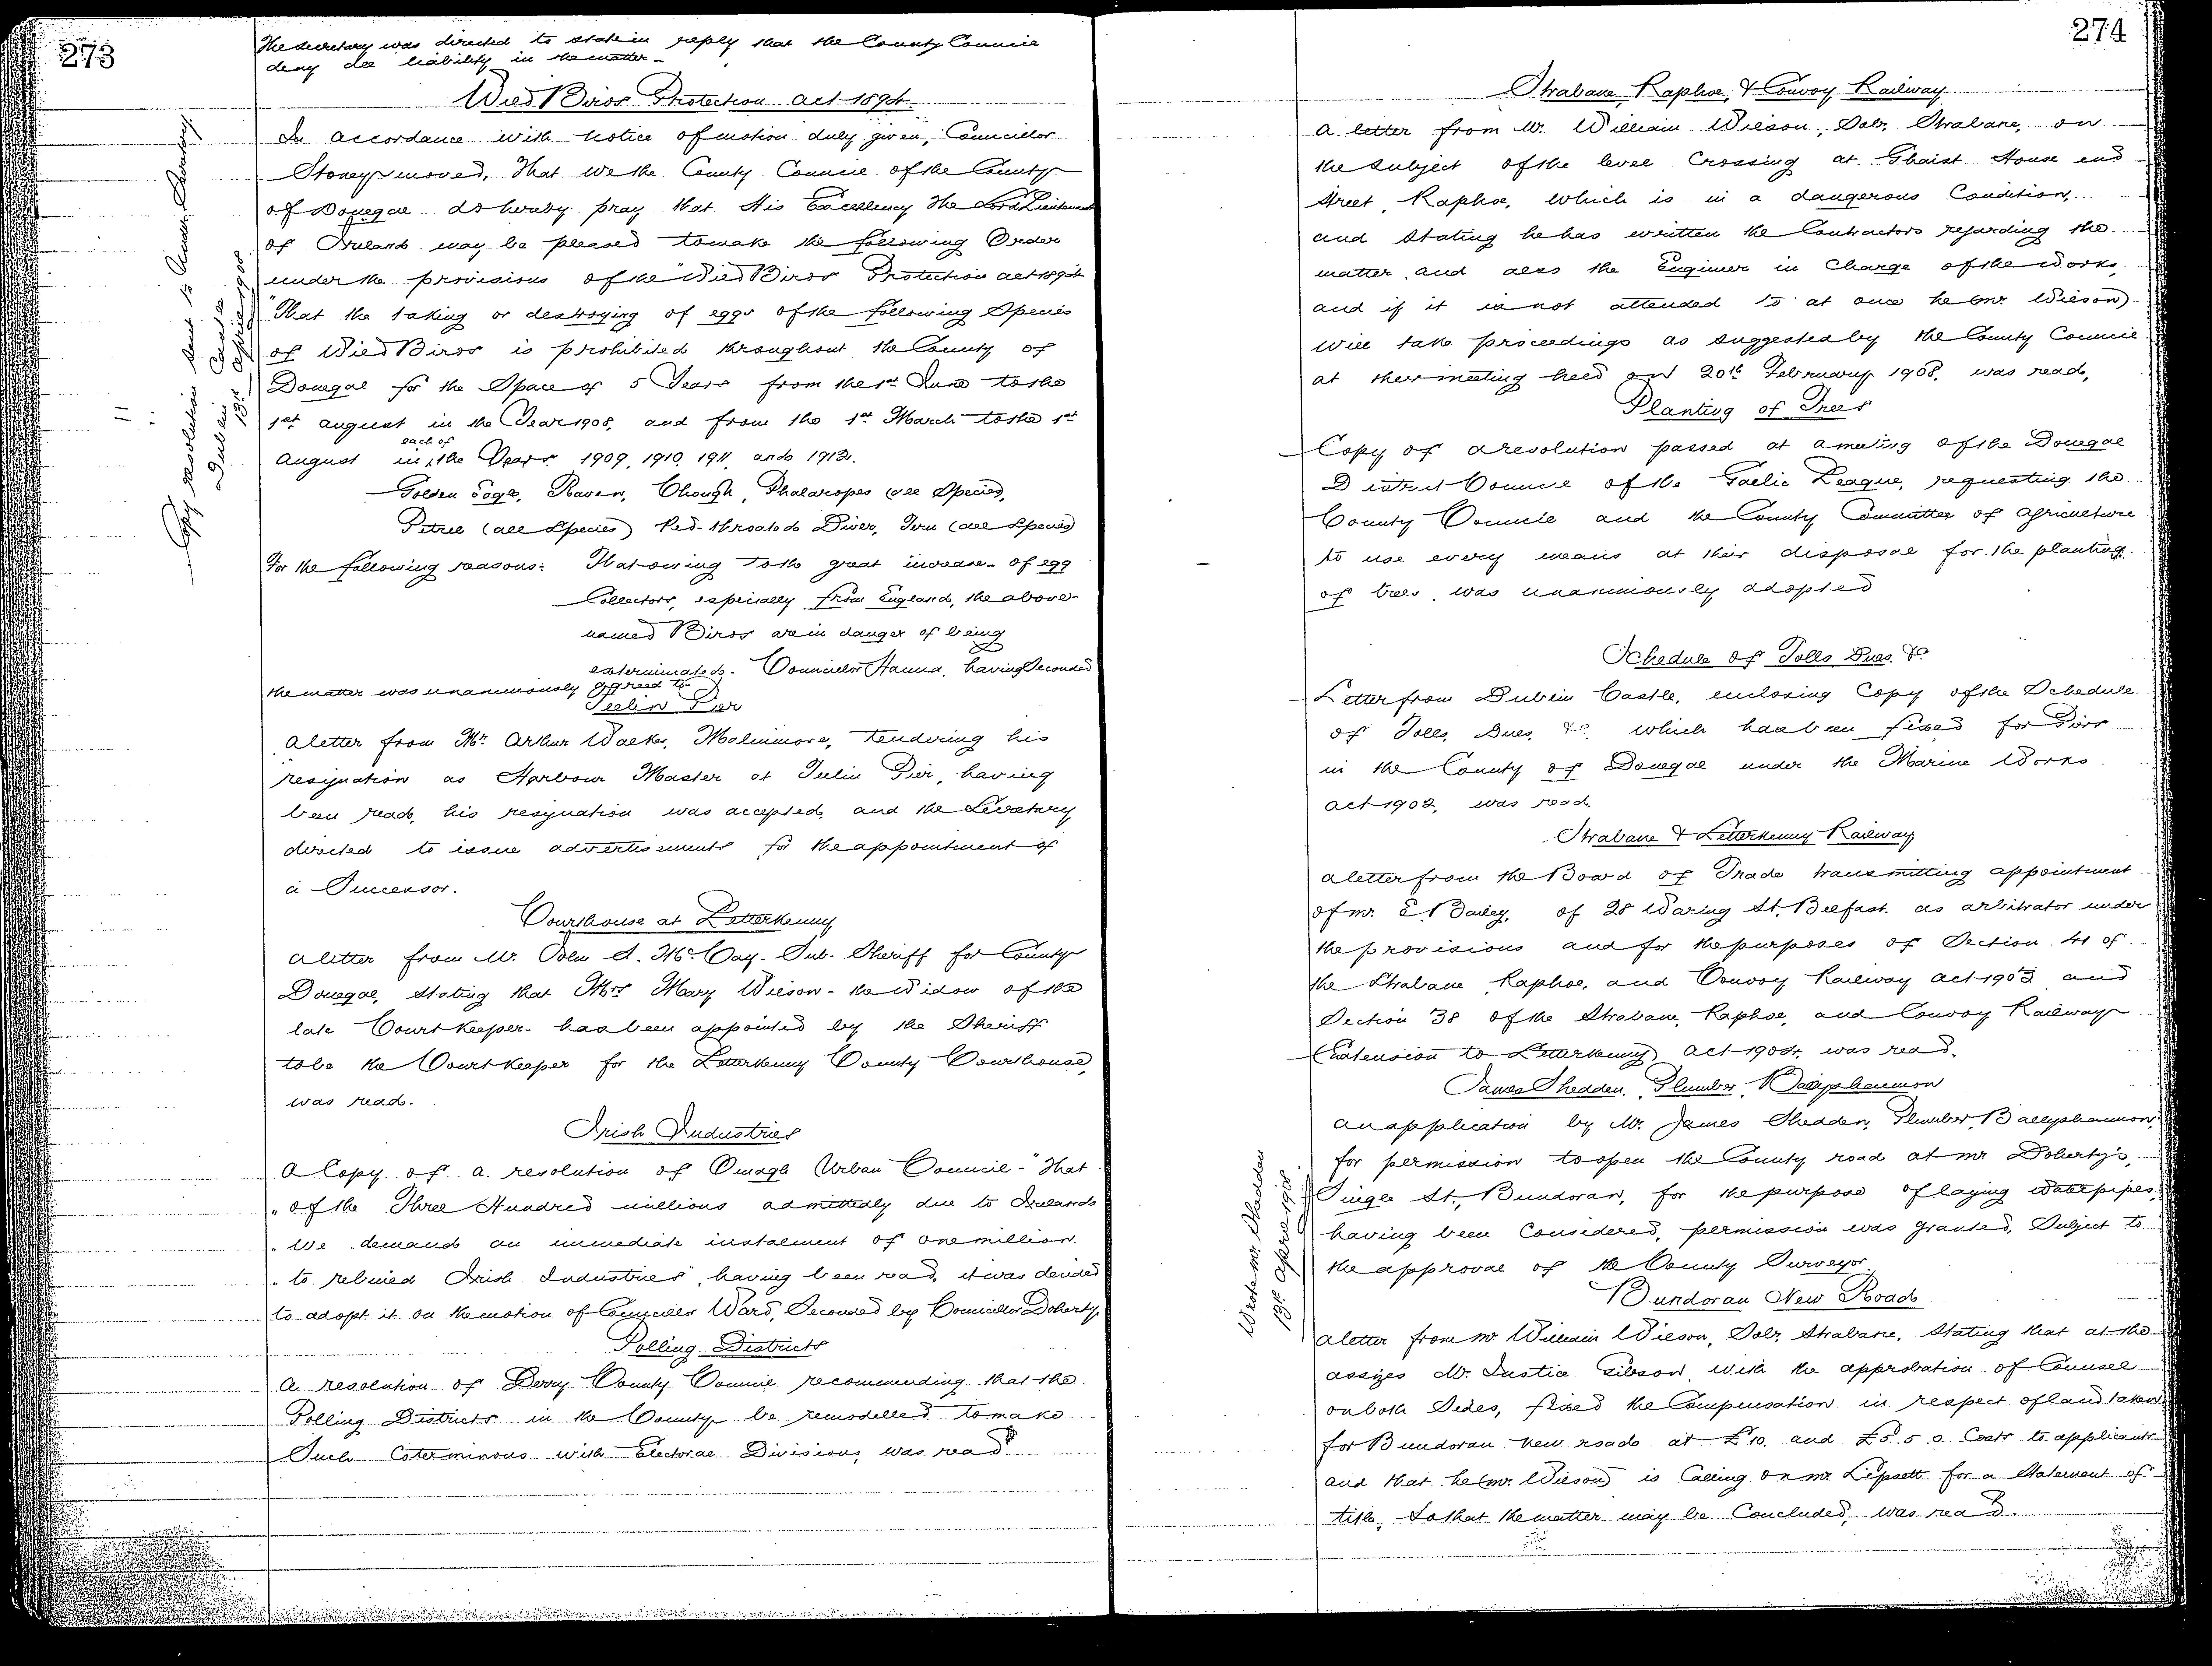 273
The Secretary was directed to state in reply that the County Council
deny all liability in the matter -
Wild Birds Protection Act 1894.
In accordance with notice of motion duly given, Councillor
Stoney moved, That we the County Council of the County
of Donegal do hereby pray that His Excellency The Lord Lieutenant
of Ireland may be pleased to make the following Order
under the provisions of the Wild Birds Protection Act 1894
"That the taking or destroying of eggs of the following Species
of Wild Birds is prohibited throughout the County of
Donegal for the Space of 5 Years from the 1st June to the
1st August in the Year 1908, and from the 1st March to the 1st
August in each of the Years 1909, 1910, 1911, and 1912.
Golden Eagle, Raven, Chough, Phalaropes (all Species),
Petrel (all Species) Red-throated Diver, Tern (all Species)
For the following reasons: That owing to the great increase of egg
Collectors, especially from England, the above-
named Birds are in danger of being
exterminated. Councillor Hanna, having Seconded
the matter was unanimously agreed to
Copy resolution sent to Under Secretary
Dublin Castle
13th April 1908
Teelin Pier
A letter from Mr. Arthur Walker, Malinmore, tendering his
resignation as Harbour Master at Teelin Pier, having
been read, his resignation was accepted, and the Secretary
directed to issue advertisements for the appointment of
a Successor.
Courthouse at Letterkenny
A letter from Mr. John A. McCay. Sub-Sheriff for County
Donegal, stating that Mrs Mary Wilson - the Widow of the
late Court Keeper - has been appointed by the Sheriff
to be the Court Keeper for the Letterkenny County Courthouse,
was read.
Irish Industries
A Copy of a resolution of Omagh Urban Council - "That
" of the Three Hundred millions admittedly due to Ireland
" We demand an immediate instalment of one million
" to rebuild Irish Industries", having been read, it was decided
to adopt it on the motion of Councillor Ward, Seconded by Councillor Doherty
Polling Districts
A resolution of Derry County Council recommending that the
Polling Districts in the County be remodelled to make
Such Coterminous with Electoral Divisions, was read
274
Strabane, Raphoe, & Convoy Railway
A letter from Mr. William Wilson, Solr. Strabane, on
the Subject of the level Crossing at Ghaist House end
Street, Raphoe, which is in a dangerous Condition,
and Stating he has written the Contractors regarding the
matter, and also the Engineer in Charge of the works,
and if it is not attended to at once he (Mr. Wilson)
will take proceedings as suggested by the County Council
at their meeting held on 20th February 1908, was read,
Planting of Trees
Copy of a resolution passed at a meeting of the Donegal
District Council of the Gaelic League, requesting the
County Council and the County Committee of Agriculture
to use every means at their disposal for the planting
of trees, was unanimously adopted
Schedule of Tolls Dues &c
Letter from Dublin Castle, enclosing Copy of the Schedule
of Tolls, Dues, &c, which has been fixed for Piers
in the County of Donegal under the Marine Works
Act 1902, was read.
Strabane & Letterkenny Railway
A letter from the Board of Trade transmitting appointment
of Mr. E. Bailey, of 28 Waring St. Belfast. as arbitrator under
the provisions and for the purposes of Section 41 of
the Strabane, Raphoe, and Convoy Railway Act 1903 and
Section 38 of the Strabane, Raphoe, and Convoy Railway
(Extension to Letterkenny) Act 1904, was read.
James Shedden, Plumber, Ballyshannon
An application by Mr. James Shedden, Plumber, Ballyshannon,
for permission to open the County road at Mr Doherty's,
Single St., Bundoran, for the purpose of laying Waterpipes,
having been Considered, permission was granted, Subject to
the approval of the County Surveyor.
Wrote Mr. Shedden
13th April 1908
Bundoran New Road
A letter from Mr William Wilson, Solr. Strabane, Stating that at the
assizes Mr. Justice Gibson, with the approbation of Counsel
on both Sides, fixed the Compensation in respect of land taken
for Bundoran new road at £10. and £5.5.0 Costs to applicants
and that he (Mr. Wilson) is Calling on Mr. Lipsett for a Statement of
title, So that the matter may be Concluded, was read.